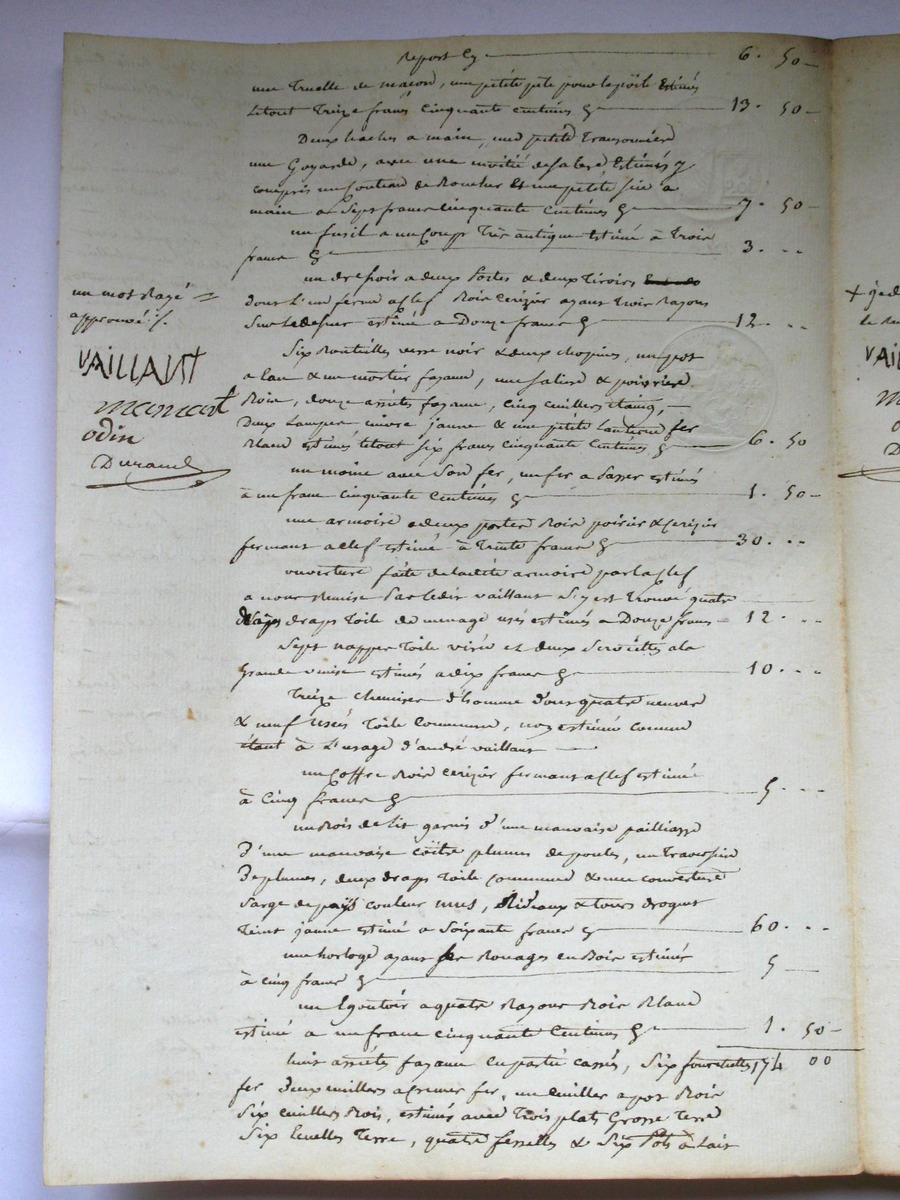 Report Cy 6. 50
une Truelle de macon, une petite pele pour le poële Estimés
Letout Treize francs Cinquante Centimes Cy 13. 50
Deux haches a main, une petite Transonniere
une Goyarde, avec une moitié de sabre Estimés y
compris un Couteau de Boucher Et une petite Scie a
main a Sept francs Cinquante Centimes Cy 7. 50
un fusil a un Coup Très antique Estimé à trois
francs Cy 3. ..
un dressoir a deux Portes & deux tiroirs
dont L'un ferme a Clef Bois Cerizier ayant trois Rayons
Sur Le dessus estimé a Douze francs Cy 12. ..
un mot Rayé
approuvé /.
VAILLANT
odin
Durand
Six Bouteilles verre noir & deux chopines, un pot
a lau & un mortier fayance, une saliere & poivriere
Bois, douze assietes fayance, Cinq cuillers Etaing,
Deux Lampes cuivre jaune & une petite Lanterne fer
Blanc estimés letout Six francs Cinquante Centimes Cy 6. 50
un moine avec Son fer, un fer a Passer estimés
à un franc Cinquante Centimes Cy 1. 50
une armoire a deux portes Bois poirier & Cerizier
fermant a Clef estimée à Trente francs Cy 30. ..
ouverture faite de ladite armoire par la Clef
a nous Remise Par ledit vaillant Il y est trouvé quatre
draps Toile de menage usés estimés a Douze francs 12. ..
Sept nappes Toile et deux Serviettes a la
Grande Venise estimés a dix francs Cy 10. ..
Treize Chemises d'homme dont quatre neuves
& neuf Usées Toile Commune, non estimées comme
étant à L'usage d'andré vaillant
un Coffre Bois Cerizier fermant a Clef estimé
à Cinq francs Cy 5. ..
un Bois de Lit garni d'une mauvaise pailliasse
D'une mauvaise Coëtre plumes de poules, un Traversin
De plumes, deux draps Toile Commune & une Couverture
Sarge de pays Couleur Rideaux & tours droguet
Teint jaune estimé a Soixante francs Cy 60. ..
une horloge ayant ses Rouages en Bois estimée
à Cinq francs Cy 5
un Egoutoir a quatre Rayons Bois Blanc
estimé a un franc Cinquante Centimes Cy 1. 50
174 00
huit assiétes fayance en partie cassés, Six fourchettes
fer Deux cuillers a ecumer fer, une Cuiller a pot Bois
Six Cuillers Bois, estimés avec Trois plats Grosse Terre
Six Ecuelles Terre, quatre fesselles & Six Pots à Lait